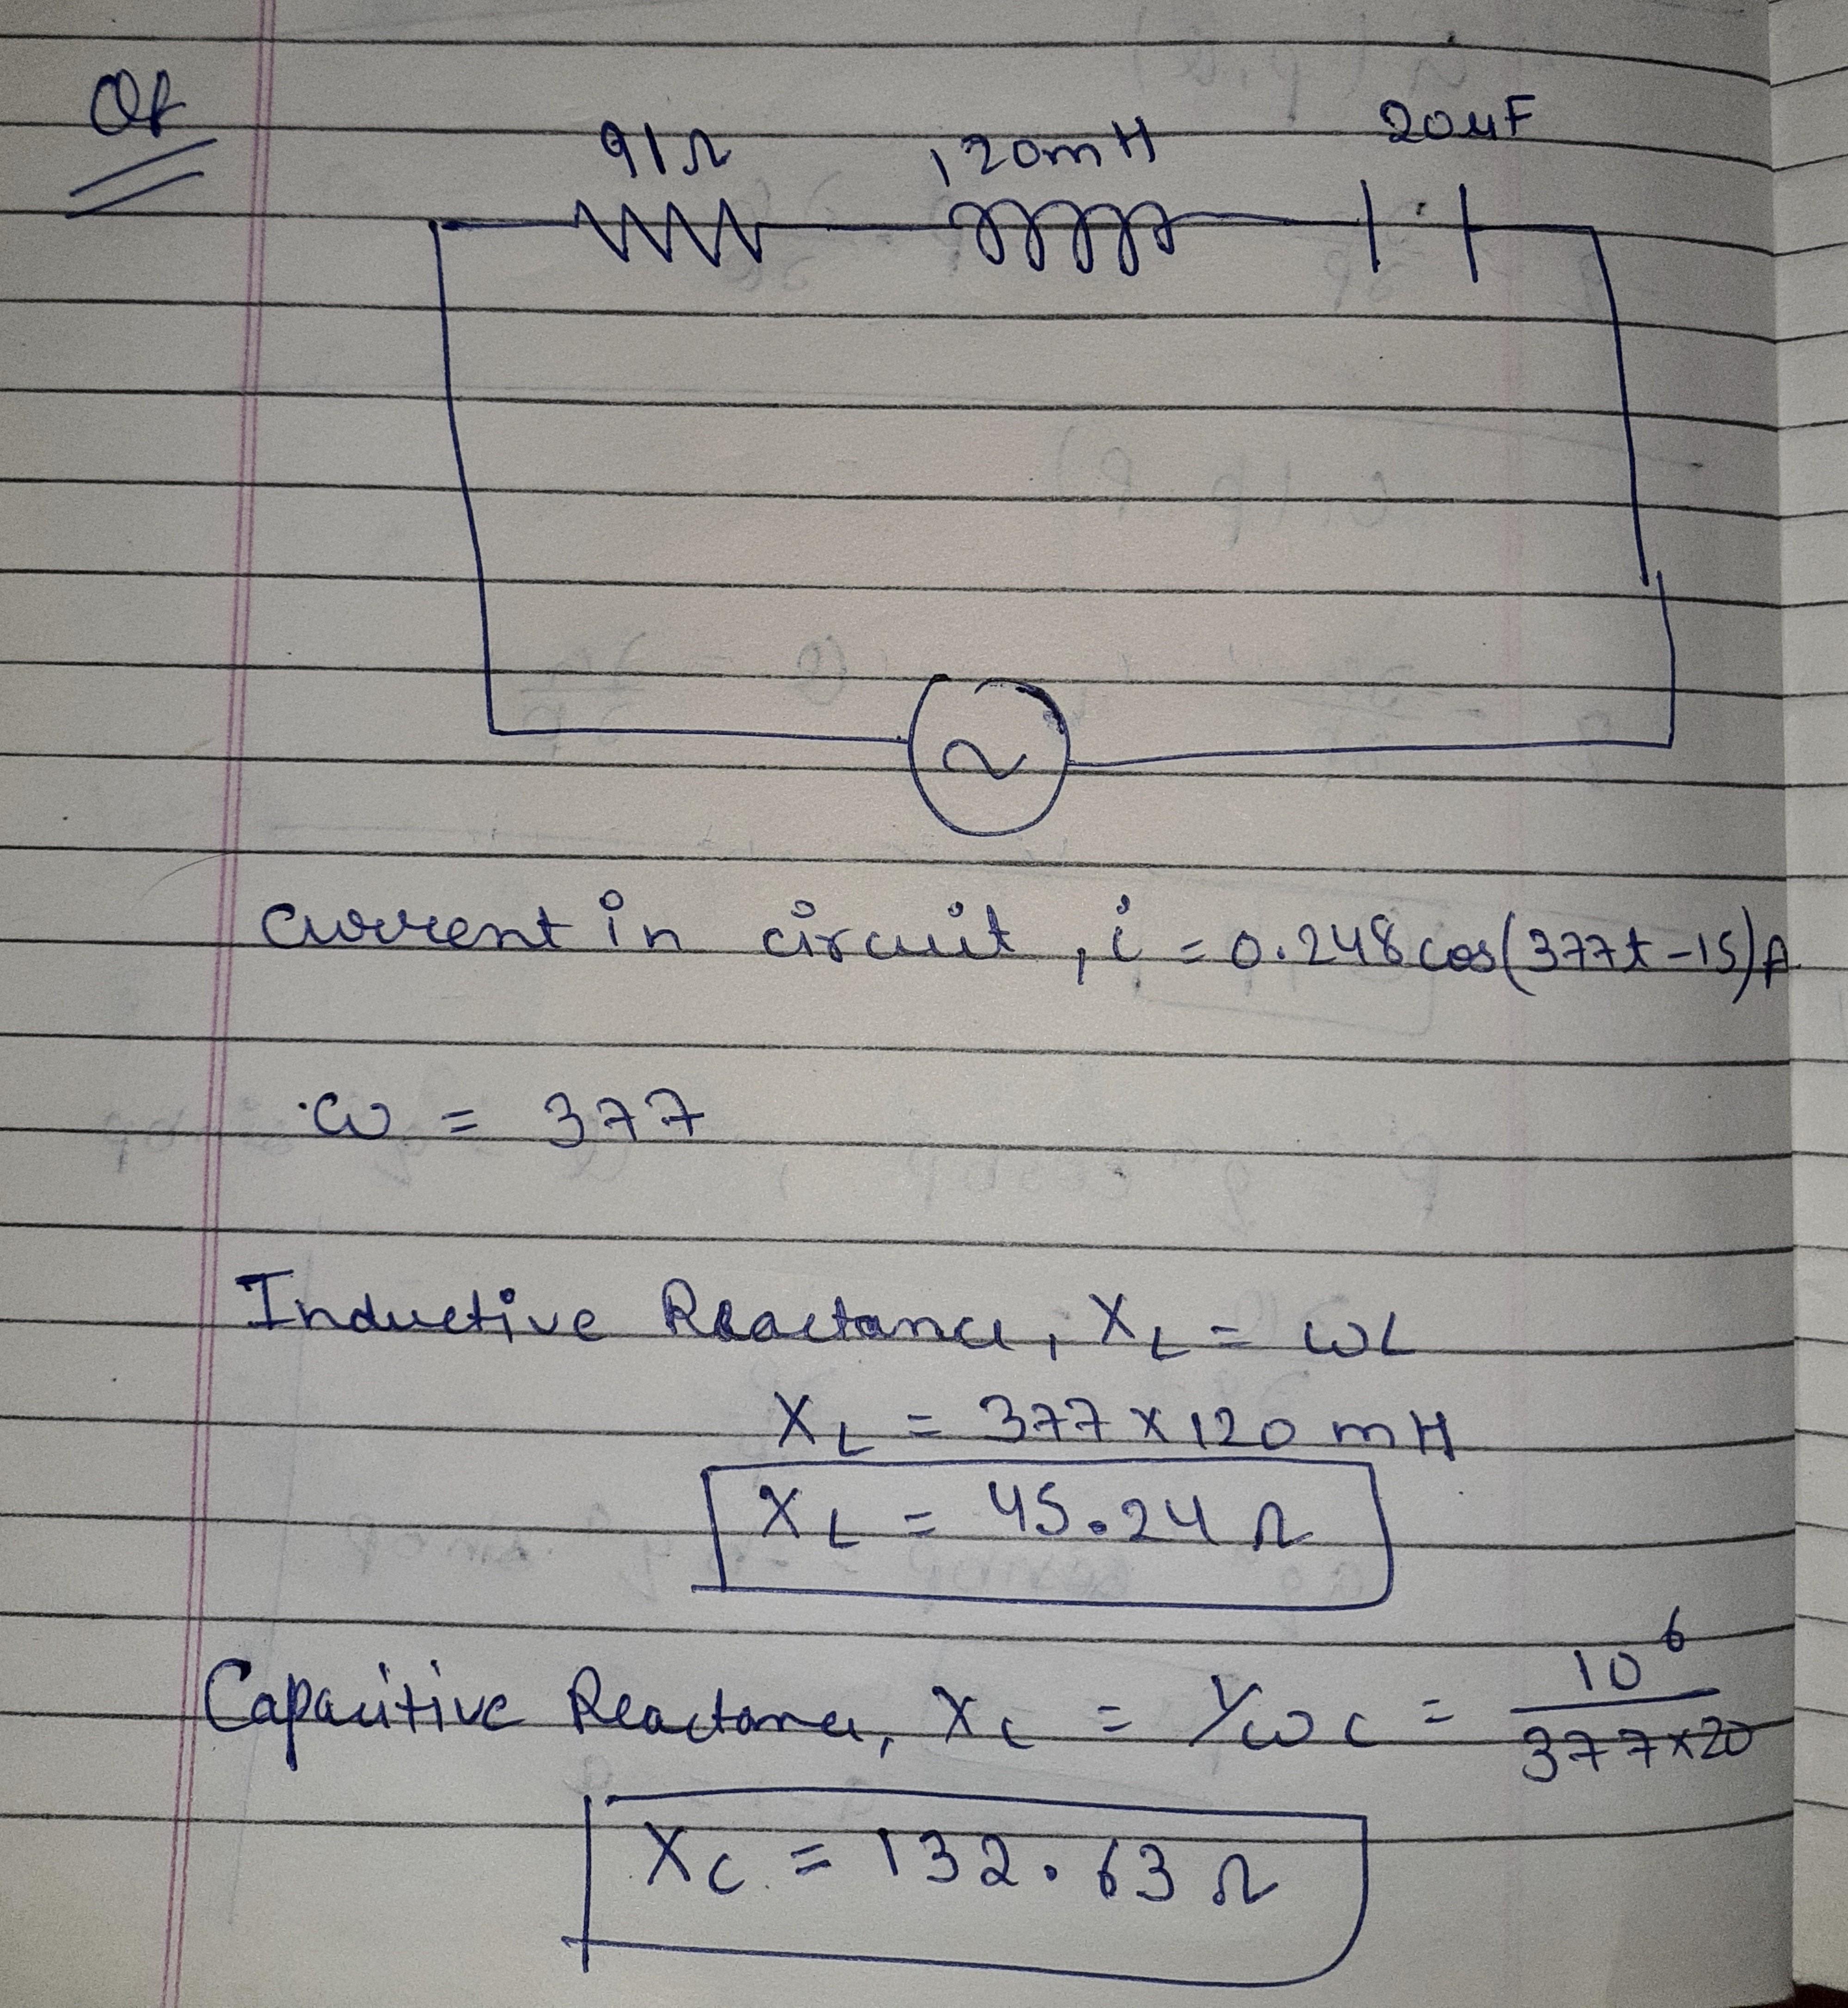 91Ω 120mH 20μF
Current in circuit, i = 0.248 cos(377t-15)A
ω = 377
Inductive Reactance, X_L = ωL
X_L = 377 × 120 mH
X_L = 45.24 Ω
Capacitive Reactance, X_C = 1/ωC = 10^6 / 377×20
X_C = 132.63 Ω